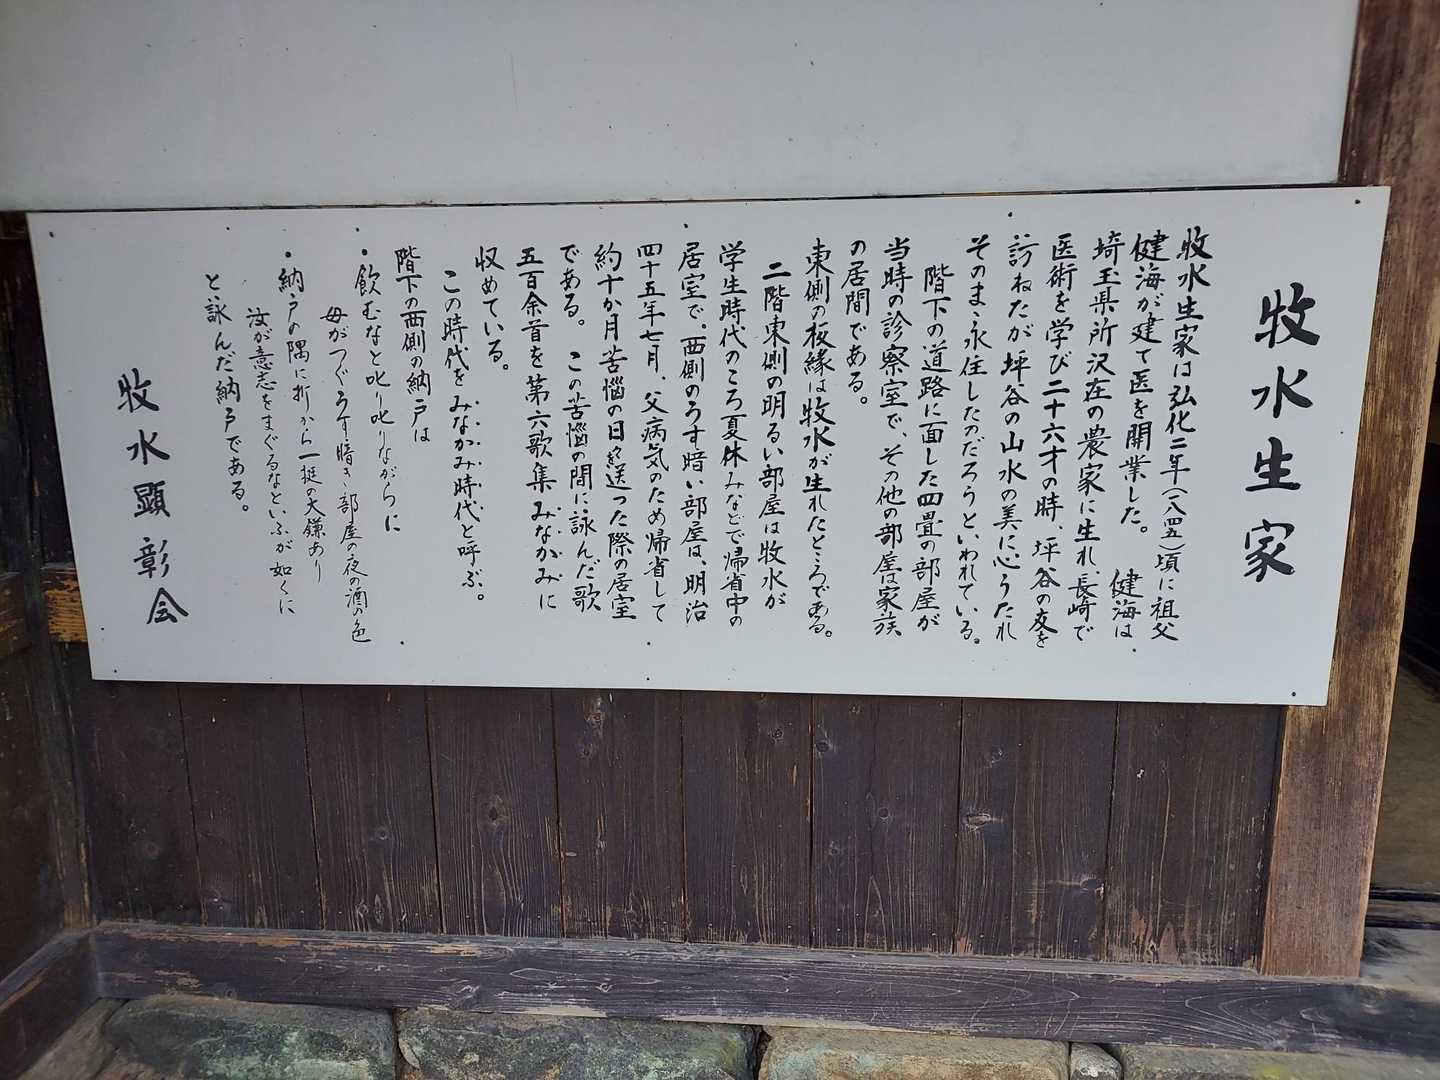 牧水生家
牧水生家は弘化二年(一八四五)頃に祖父
健海が建て医を開業した。 健海は
埼玉県所沢在の農家に生れ、長崎で
医術を学び二十六才の時、坪谷の友を
訪ねたが坪谷の山水の美に心うたれ
そのまゝ永住したのだろうといわれている。
階下の道路に面した四畳の部屋が
当時の診察室で、その他の部屋は家族
の居間である。
東側の板縁は牧水が生れたところである。
二階東側の明るい部屋は牧水が
学生時代のころ夏休みなどで帰省中の
居室で、西側のうす暗い部屋は、明治
四十五年七月、父病気のため帰省して
約十か月苦悩の日を送った際の居室
である。 この苦悩の間に詠んだ歌
五百余首を第六歌集みなかみに
収めている。
この時代をみなかみ時代と呼ぶ。
階下の西側の納戸は
・飲むなと叱り叱りながらに
母がつぐうす暗き部屋の夜の酒の色
・納戸の隅に折から一挺の大鎌あり
汝が意志をまぐるなといふが如くに
と詠んだ納戸である。
牧水顕彰会